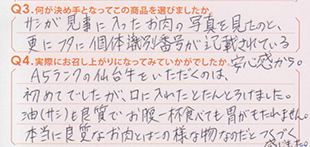 Q3.何が決め手となってこの商品を選びましたか。
サシが見事に入ったお肉の写真を見たのと、
更にフタに個体識別番号が記載されている
安心感から。
Q4.実際にお召し上がりになってみていかがでしたか。
A5ランクの仙台牛をいただくのは、
初めてでしたが、口に入れたとたんとろけました。
油(サシ)も良質でお腹一杯食べても胃がもたれません。
本当に良質なお肉とはこの様な物なのだとつくづく
感じました。